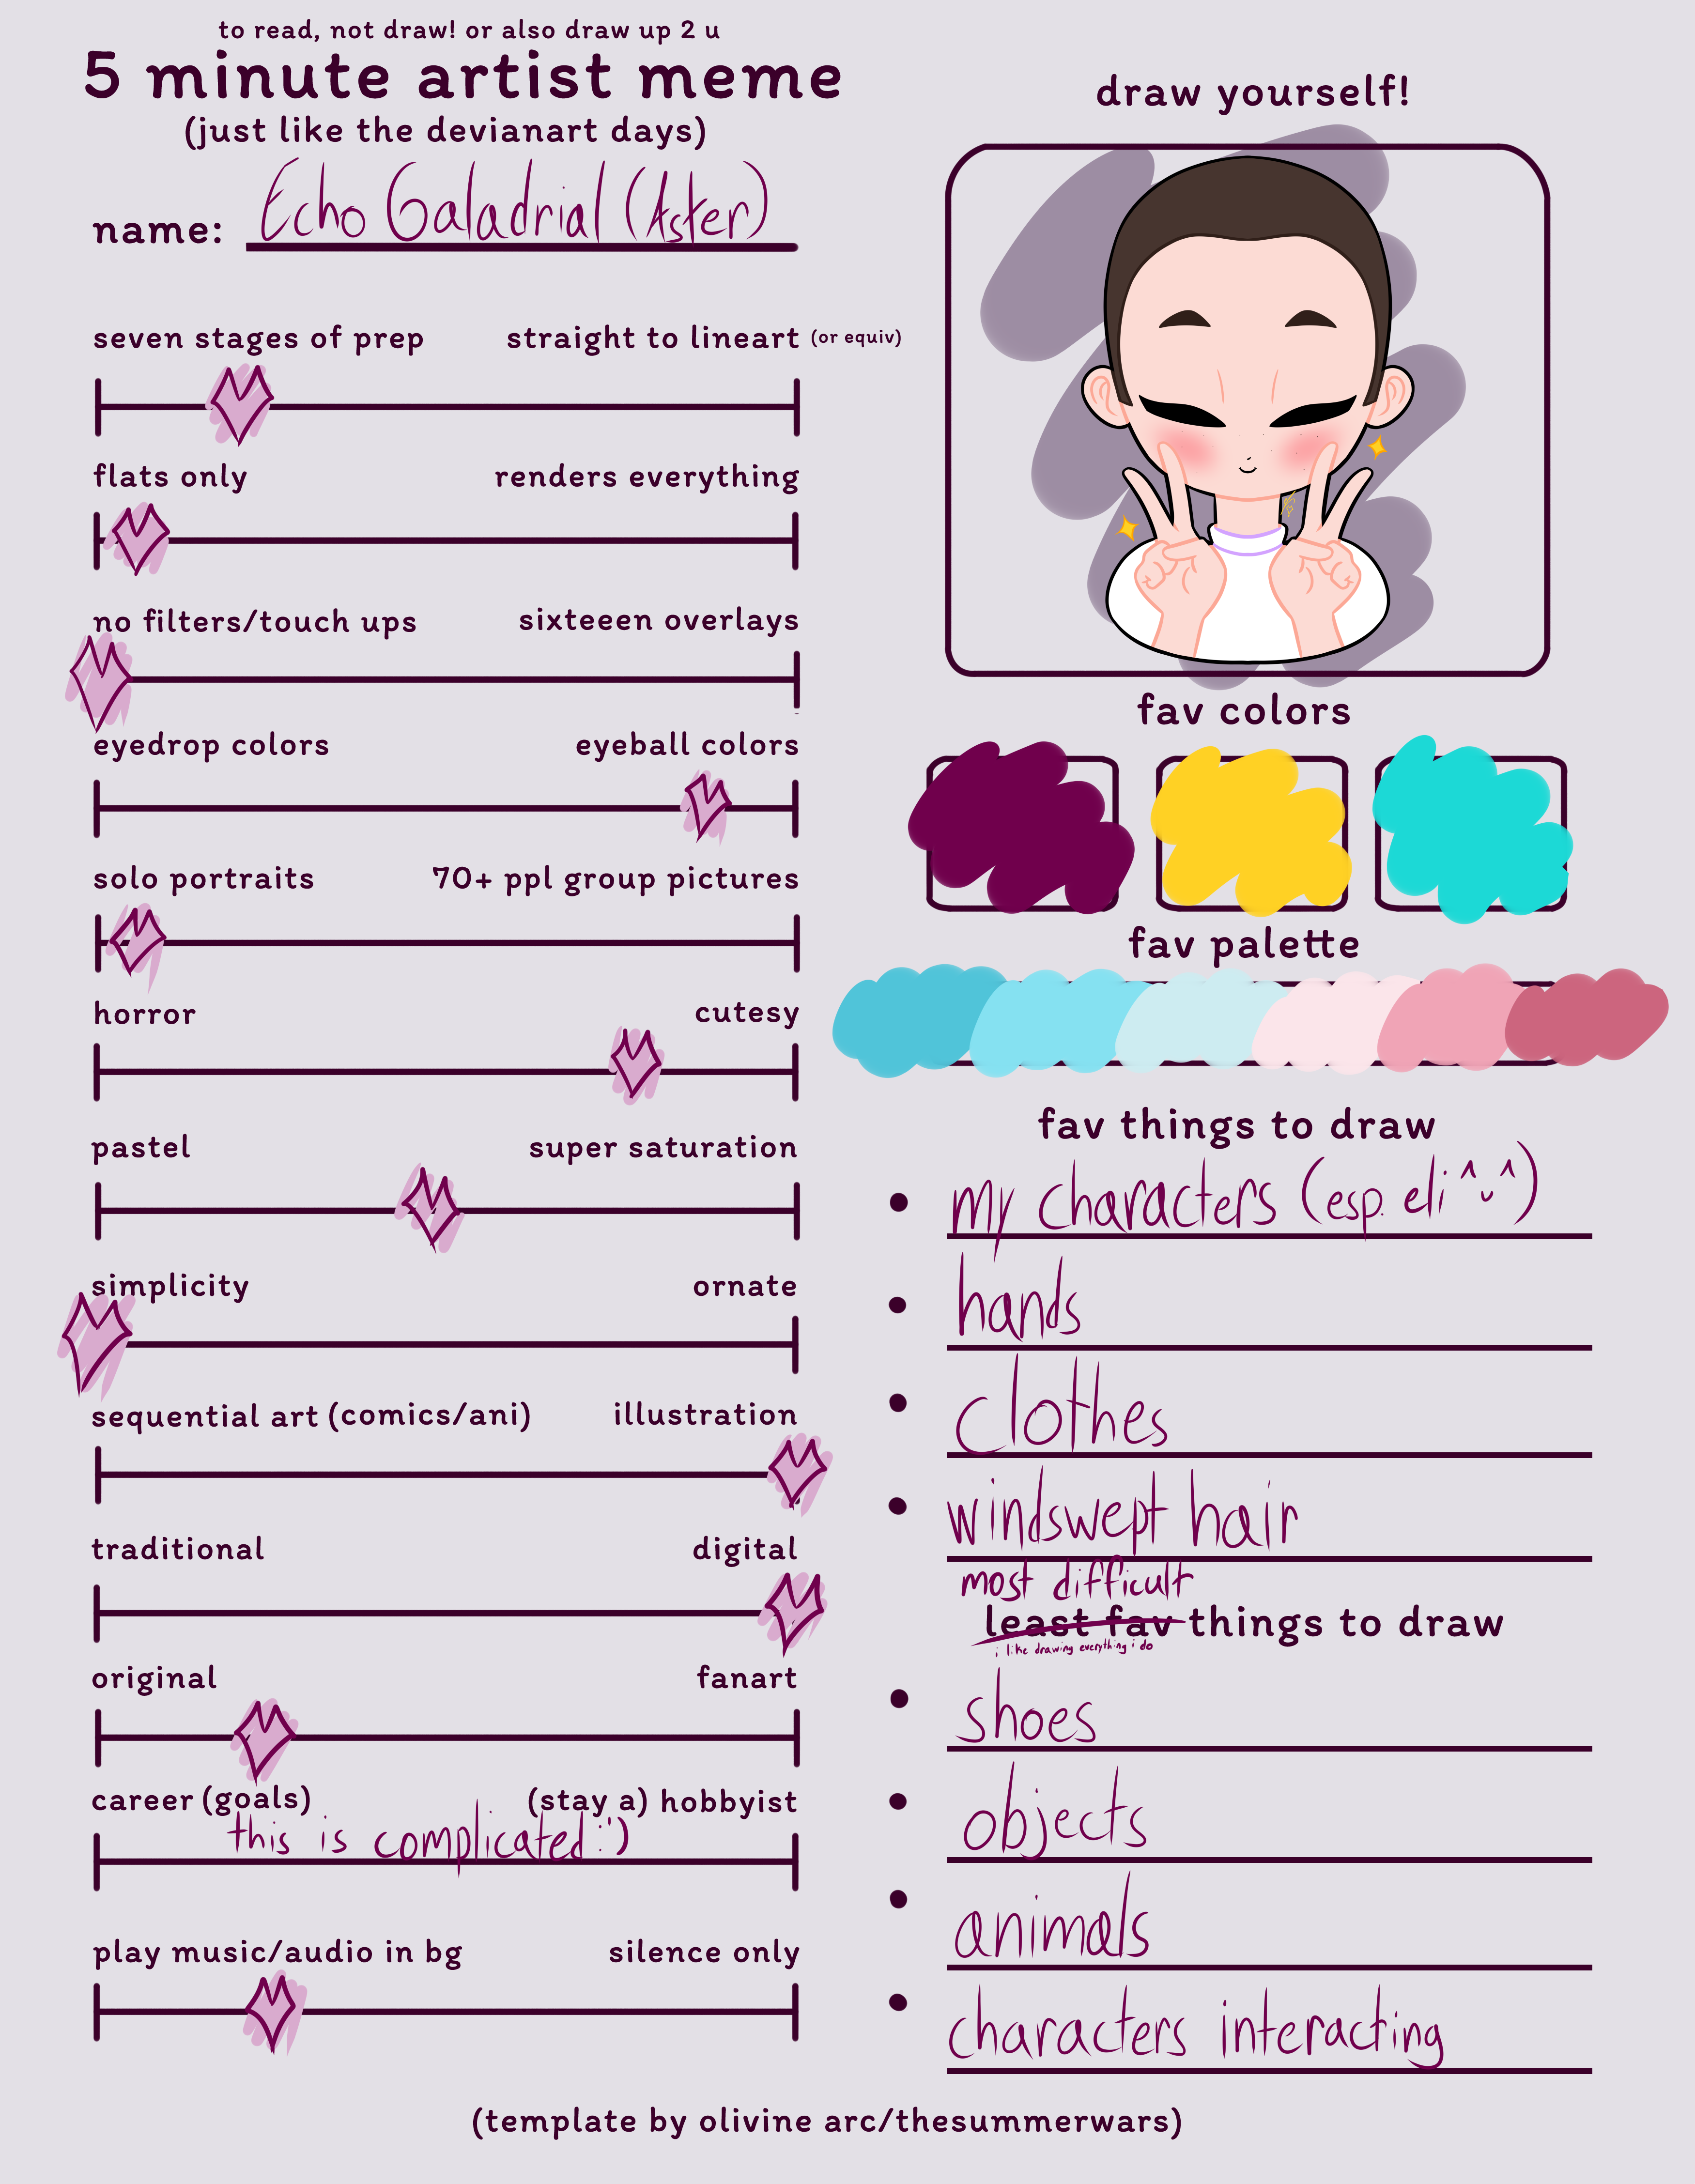 to read, not draw! or also draw up 2 u
5 minute artist meme
(just like the devianart days)
name: Echo Galadrial (Aster)
seven stages of prep straight to lineart (or equiv)
flats only renders everything
no filters/touch ups sixteeen overlays
eyedrop colors eyeball colors
solo portraits 70+ ppl group pictures
horror cutesy
pastel super saturation
simplicity ornate
sequential art (comics/ani) illustration
traditional digital
original fanart
career (goals) (stay a) hobbyist
this is complicated :')
play music/audio in bg silence only
draw yourself!
fav colors
fav palette
fav things to draw
my characters (esp. eli ^ᴗ^)
hands
clothes
windswept hair
most difficult
least fav things to draw
i like drawing everything i do
shoes
objects
animals
characters interacting
(template by olivine arc/thesummerwars)